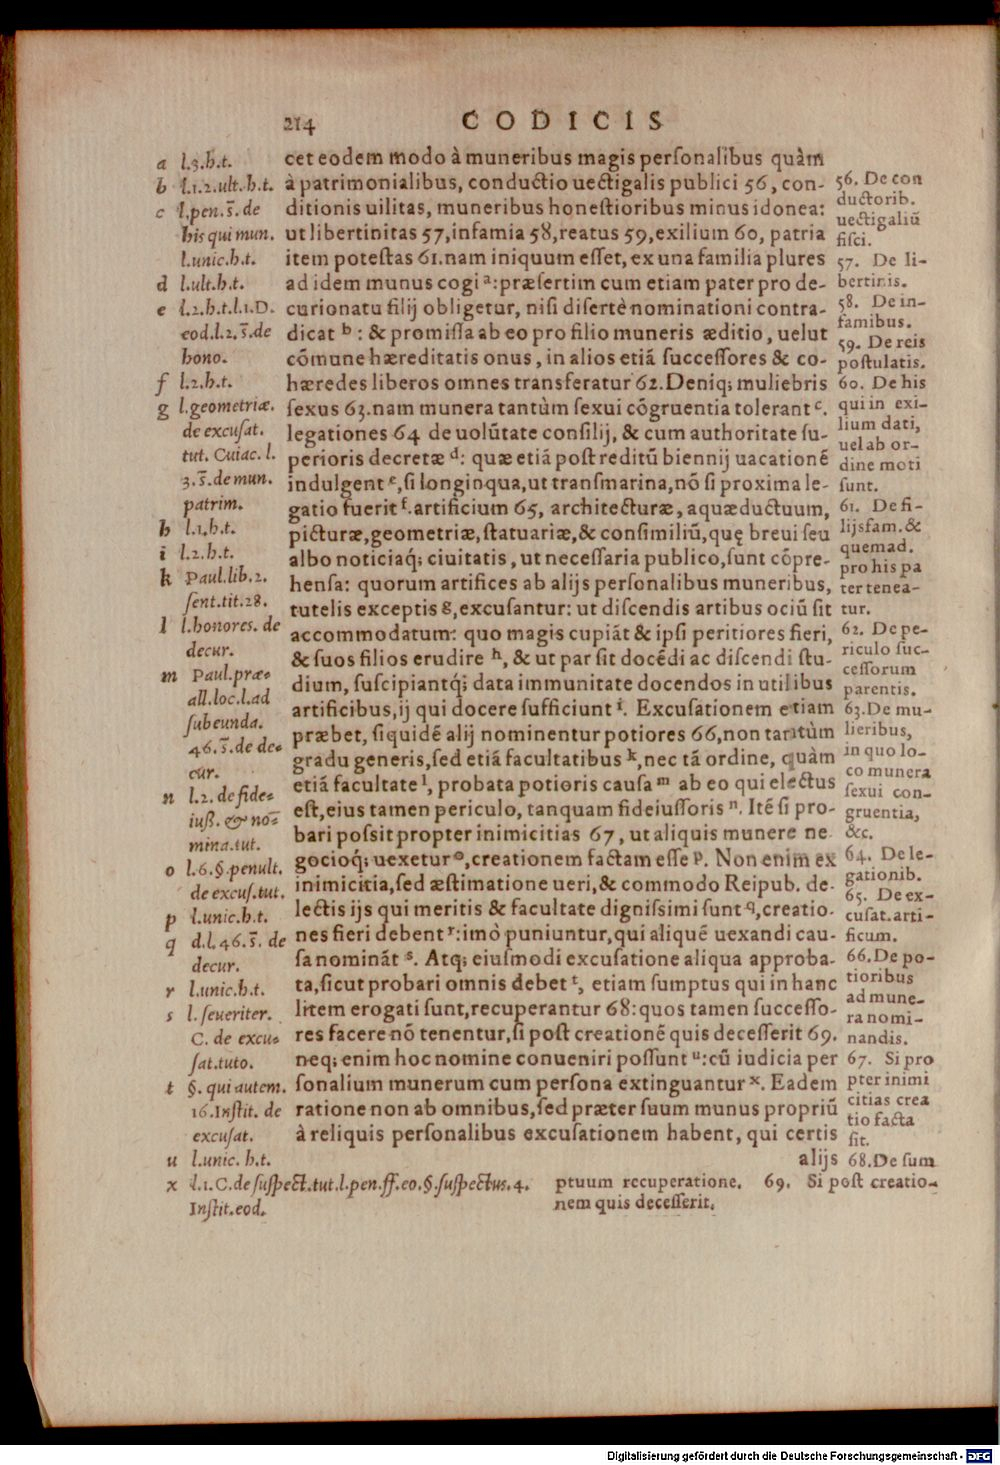 214 CODICIS
cet eodem modo à muneribus magis perſonalibus quàm
à patrimonialibus, conductio uectigalis publici 56, con-
ditionis uilitas, muneribus honeſtioribus minus idonea:
ut libertinitas 57, infamia 58, reatus 59, exilium 60, patria
item poteſtas 61. nam iniquum eſſet, ex una familia plures
ad idem munus cogi a: præſertim cum etiam pater pro de-
curionatu filij obligetur, niſi diſertè nominationi contra-
dicat b: & promiſſa ab eo pro filio muneris æditio, uelut
cõmune hæreditatis onus, in alios etiá ſucceſſores & co-
hæredes liberos omnes transferatur 62. Deniq; muliebris
ſexus 63. nam munera tantùm ſexui cõgruentia tolerant c.
legationes 64 de uolũtate conſilij, & cum authoritate ſu-
perioris decretæ d: quæ etiá poſt reditũ biennij uacationẽ
indulgent e, ſi longinqua, ut tranſmarina, nõ ſi proxima le-
gatio fuerit f. artificium 65, architecturæ, aquæductuum,
picturæ, geometriæ, ſtatuariæ, & conſimiliũ, quę breui ſeu
albo noticiaq́; ciuitatis, ut neceſſaria publico, ſunt cõpre-
henſa: quorum artifices ab alijs perſonalibus muneribus,
tutelis exceptis g, excuſantur: ut diſcendis artibus ociũ ſit
accommodatum: quo magis cupiát & ipſi peritiores fieri,
& ſuos filios erudire h, & ut par ſit docẽdi ac diſcendi ſtu-
dium, ſuſcipiantq́; data immunitate docendos in utilibus
artificibus, ij qui docere ſufficiunt i. Excuſationem etiam
præbet, ſiquidẽ alij nominentur potiores 66, non tantùm
gradu generis, ſed etiá facultatibus k, nec tá ordine, quàm
etiá facultate l, probata potioris cauſa m ab eo qui electus
eſt, eius tamen periculo, tanquam fideiuſſoris n. Itẽ ſi pro-
bari poſsit propter inimicitias 67, ut aliquis munere ne
gocioq́; uexetur o, creationem factam eſſe p. Non enim ex
inimicitia, ſed æſtimatione ueri, & commodo Reipub. de-
lectis ijs qui meritis & facultate digniſsimi ſunt q, creatio-
nes fieri debent r: imò puniuntur, qui aliquẽ uexandi cau-
ſa nominát s. Atq; eiuſmodi excuſatione aliqua approba-
ta, ſicut probari omnis debet t, etiam ſumptus qui in hanc
litem erogati ſunt, recuperantur 68: quos tamen ſucceſſo-
res facere nõ tenentur, ſi poſt creationẽ quis deceſſerit 69.
neq; enim hoc nomine conueniri poſſunt u: cũ iudicia per
ſonalium munerum cum perſona extinguantur x. Eadem
ratione non ab omnibus, ſed præter ſuum munus propriũ
à reliquis perſonalibus excuſationem habent, qui certis
alijs
a l.3.h.t.
b l.1.2.ult.h.t.
c l.pen.s̄. de
his qui mun.
l.unic.h.t.
d l.ult.h.t.
e l.2.h.t.l.1.D.
eod.l.2.s̄.de
hono.
f l.2.h.t.
g l.geometriæ.
de excuſat.
tut. Cuiac. l.
3.s̄.de mun.
patrim.
h l.1.h.t.
i l.2.h.t.
k Paul.lib.2.
ſent.tit.28.
l l.honores. de
decur.
m Paul.præ-
all.loc.l.ad
ſubeunda.
46.s̄.de de-
cur.
n l.2. de fide-
iuß. & no-
mina.tut.
o l.6.§.penult.
de excuſ.tut.
p l.unic.h.t.
q d.l.46.s̄. de
decur.
r l.unic.h.t.
s l.ſeueriter.
C. de excu-
ſat.tuto.
t §. qui autem.
16.Inſtit. de
excuſat.
u l.unic. h.t.
x l.1.C.de ſuſpect.tut.l.pen.ff.eo.§.ſuſpectus.4.
Inſtit.eod.
56. De con
ductorib.
uectigaliũ
fiſci.
57. De li-
bertinis.
58. De in-
famibus.
59. De reis
poſtulatis.
60. De his
qui in exi-
lium dati,
uel ab or-
dine moti
ſunt.
61. De fi-
lijsfam. &
quemad.
pro his pa
ter tenea-
tur.
62. De pe-
riculo ſuc-
ceſſorum
parentis.
63. De mu-
lieribus,
in quo lo-
co munera
ſexui con-
gruentia,
&c.
64. De le-
gationib.
65. De ex-
cuſat. arti-
ficum.
66. De po-
tioribus
ad mune-
ra nomi-
nandis.
67. Si pro
pter inimi
citias crea
tio facta
ſit.
68. De ſum
ptuum recuperatione. 69. Si poſt creatio-
nem quis deceſſerit.
Digitalisierung gefördert durch die Deutsche Forschungsgemeinschaft - DFG